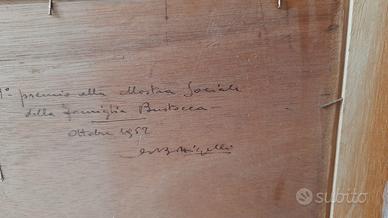 1° premio alla Mostra Sociale
della Famiglia Bustocca
Ottobre 1952
subito